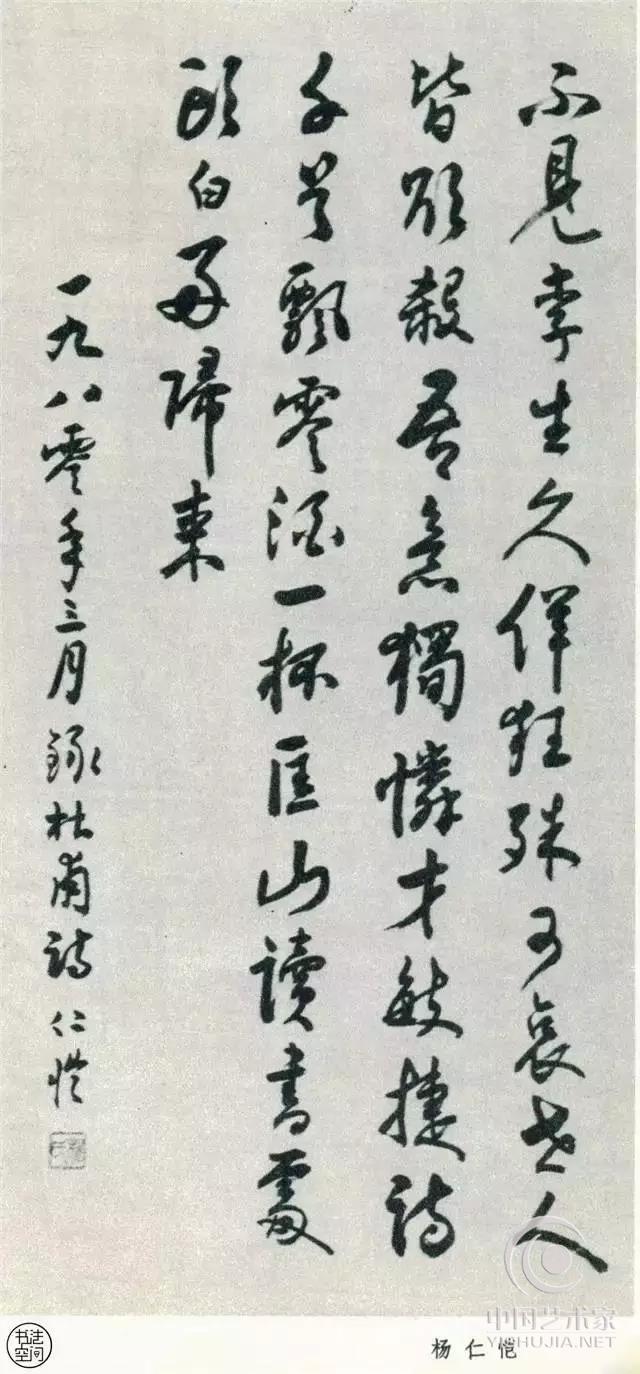 不見李生久佯狂殊可哀世人
皆欲殺吾意獨憐才敏捷詩
千首飄零酒一杯匡山讀書處
頭白好歸來
一九八零年三月錄杜甫詩仁愷
杨仁恺
中国艺术家
YISHUJIA.NET
书法
空间